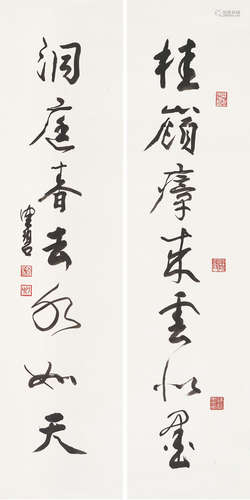 桂嶺瘴来雲似墨
洞庭春去水如天